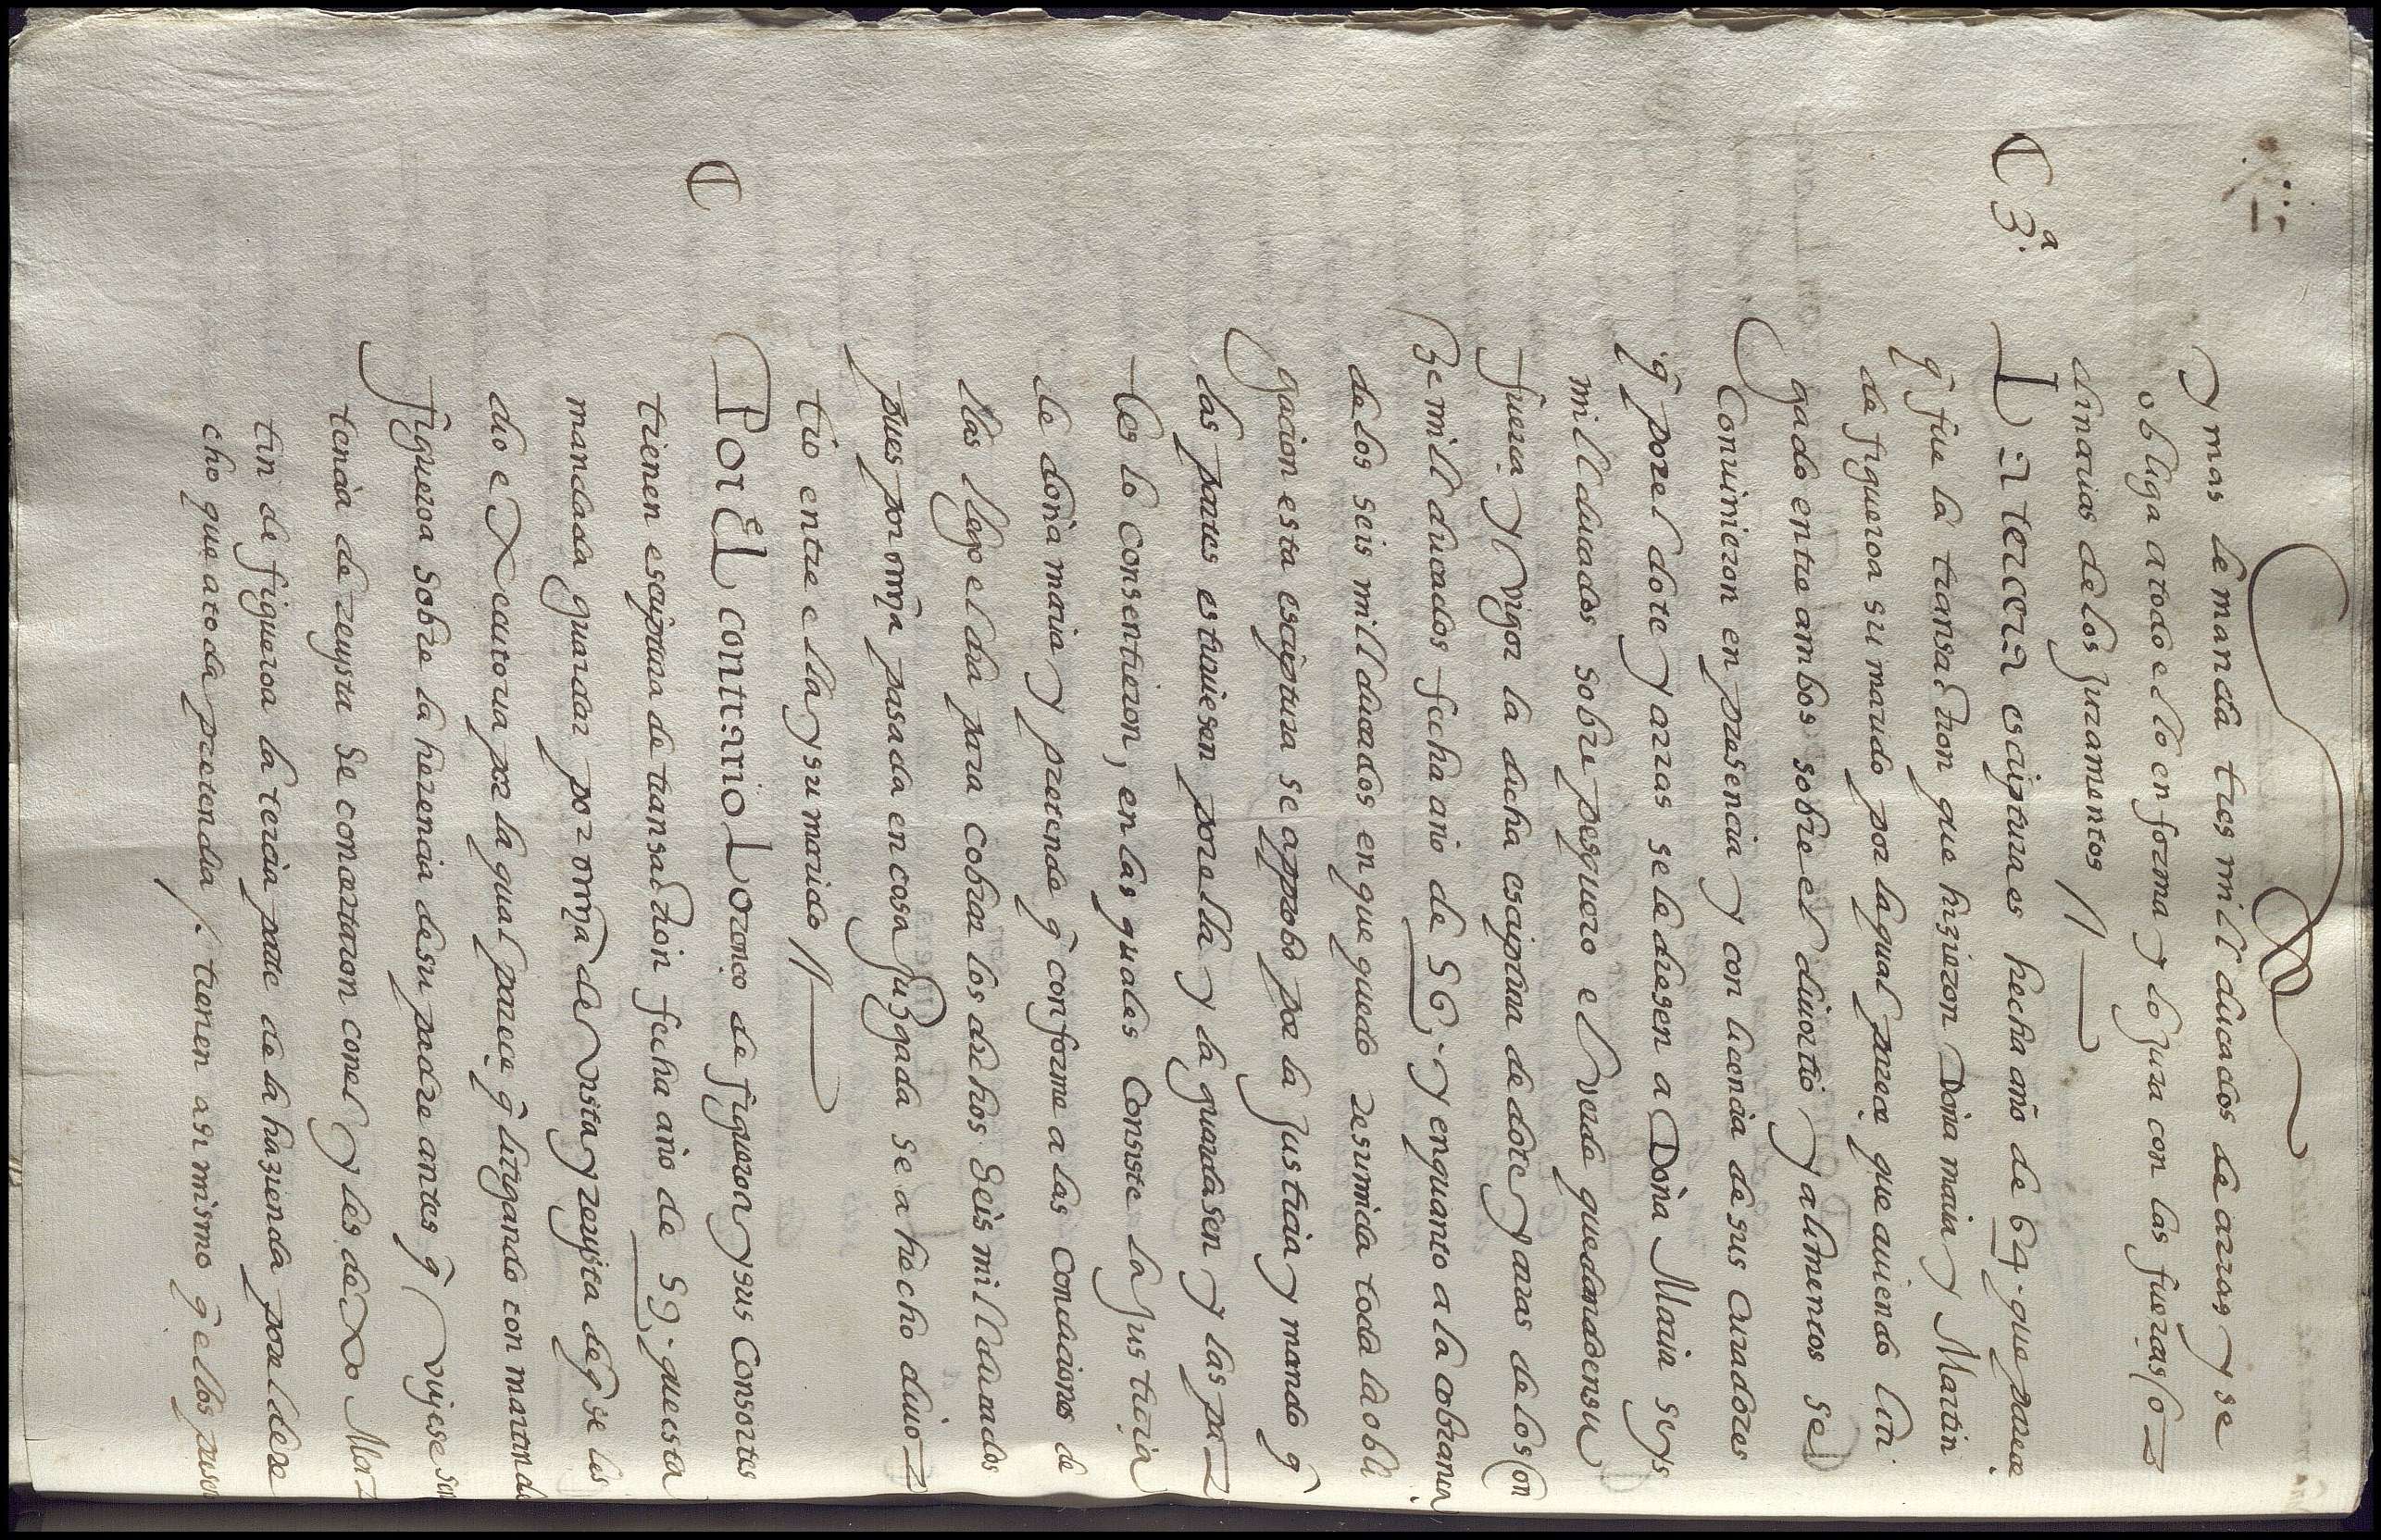 y mas le manda tres mill ducados de arras y se
obliga a todo ello en forma y lo jura con las fuerzas
dinarias de los juramentos //
₡ 3ª La tercera escriptura es hecha año de 64. que parece
q̃ fue la transaction que hizieron Doña maria y Martin
de figueroa su marido por la qual parece que auiendo liti
gado entre ambos sobre el diuortio y alimentos se
Conuinieron en presencia y con licencia de sus curadores
q̃ por el dote y arras se le diesen a Doña Maria seys
mill ducados sobre pesquero el vado quedandose en su
fuerça y vigor la dicha escriptura de dote y arras de los on
ze mill ducados fecha año de 56. y en quanto a la cobrança
de los seis mill ducados en que quedo resumida toda la obli
gacion esta escriptura se approbo por la justicia y mando q̃
las partes estuuiesen por ella y la guardasen y las pa
tes lo consentieron, en las quales Consiste la justicia
de doña maria y pretende q̃ conforme a las condiciones de
llas llego el dia para cobrar los dichos seis mill ducados
pues por sentencia pasada en cosa juzgada se a hecho diuo
tio entre ella y su marido //
₡ Por EL contrario Lorenço de figueroa y sus Consortes
tienen escriptura de transaction fecha año de 59. que esta
mandada guardar por sentencia de vista y reuista de q̃ se les
dio executoria por la qual parece q̃ litigando con martin de
figueroa sobre la herencia de su padre antes q̃ vuiese sen
tencia de reuysta se concertaron con el y les dexo Mar
tin de figueroa la tercia parte de la hazienda por el dere
cho que a toda pretendia /. tienen asi mismo q̃ ellos